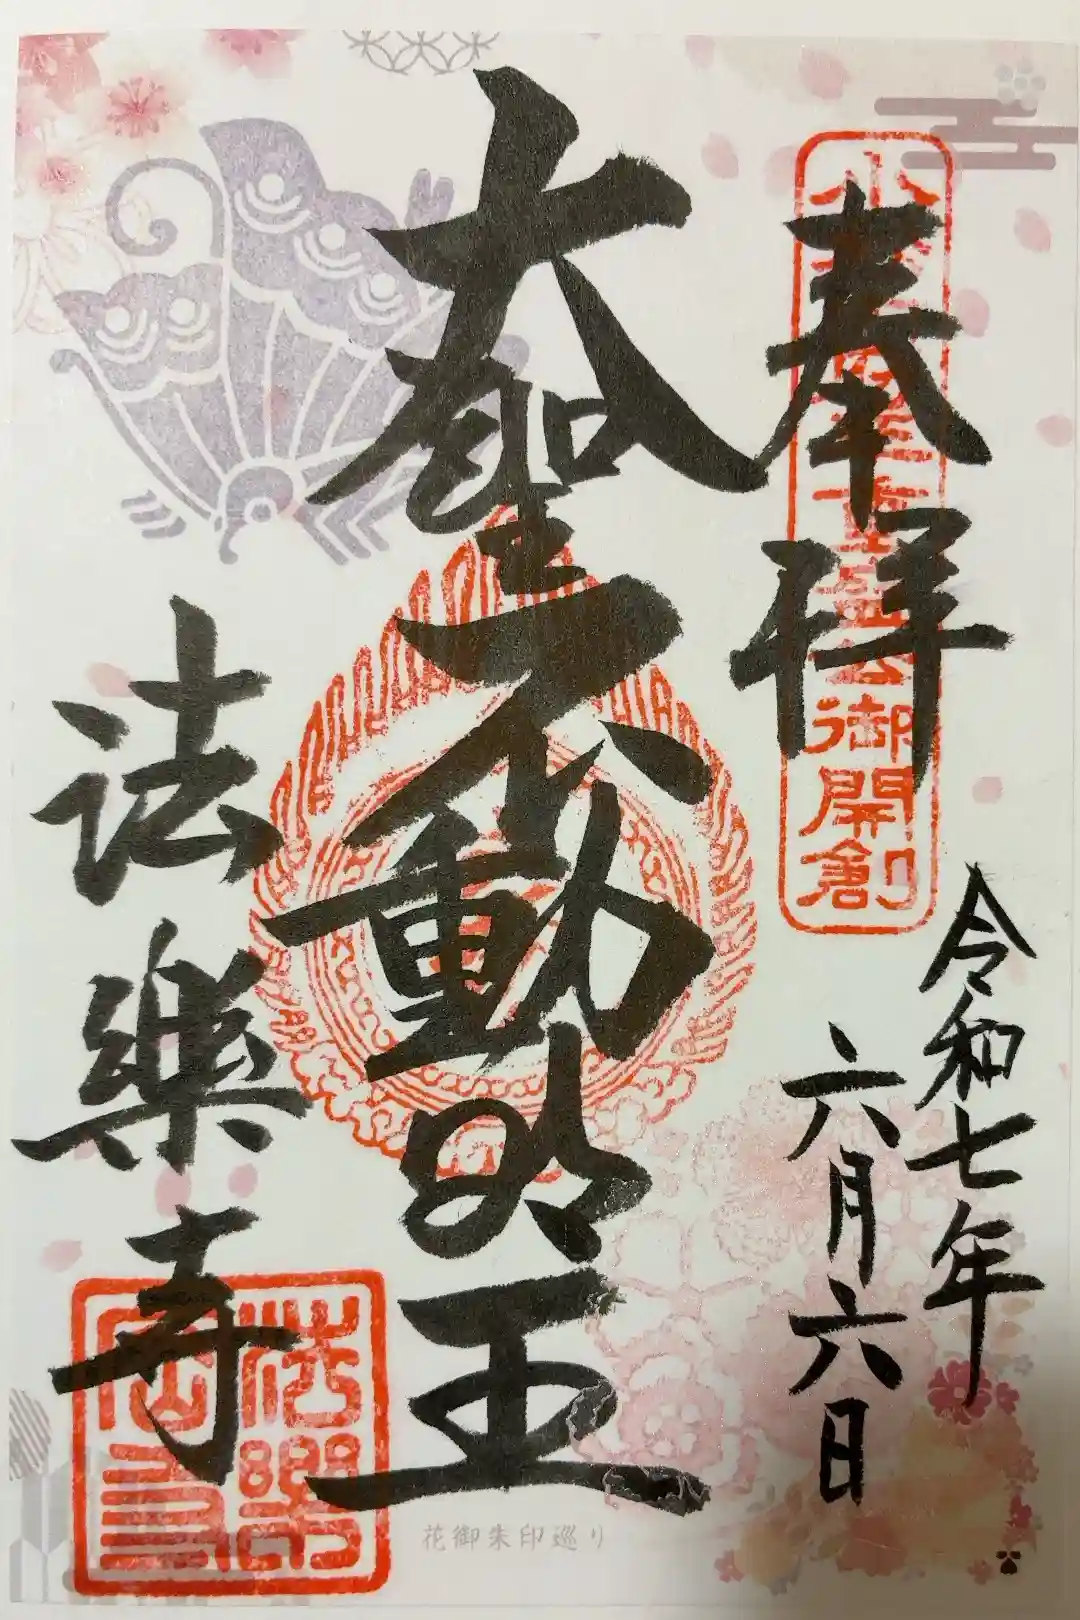 奉拝
令和七年
六月六日
大聖不動明王
法樂寺
花御朱印巡り